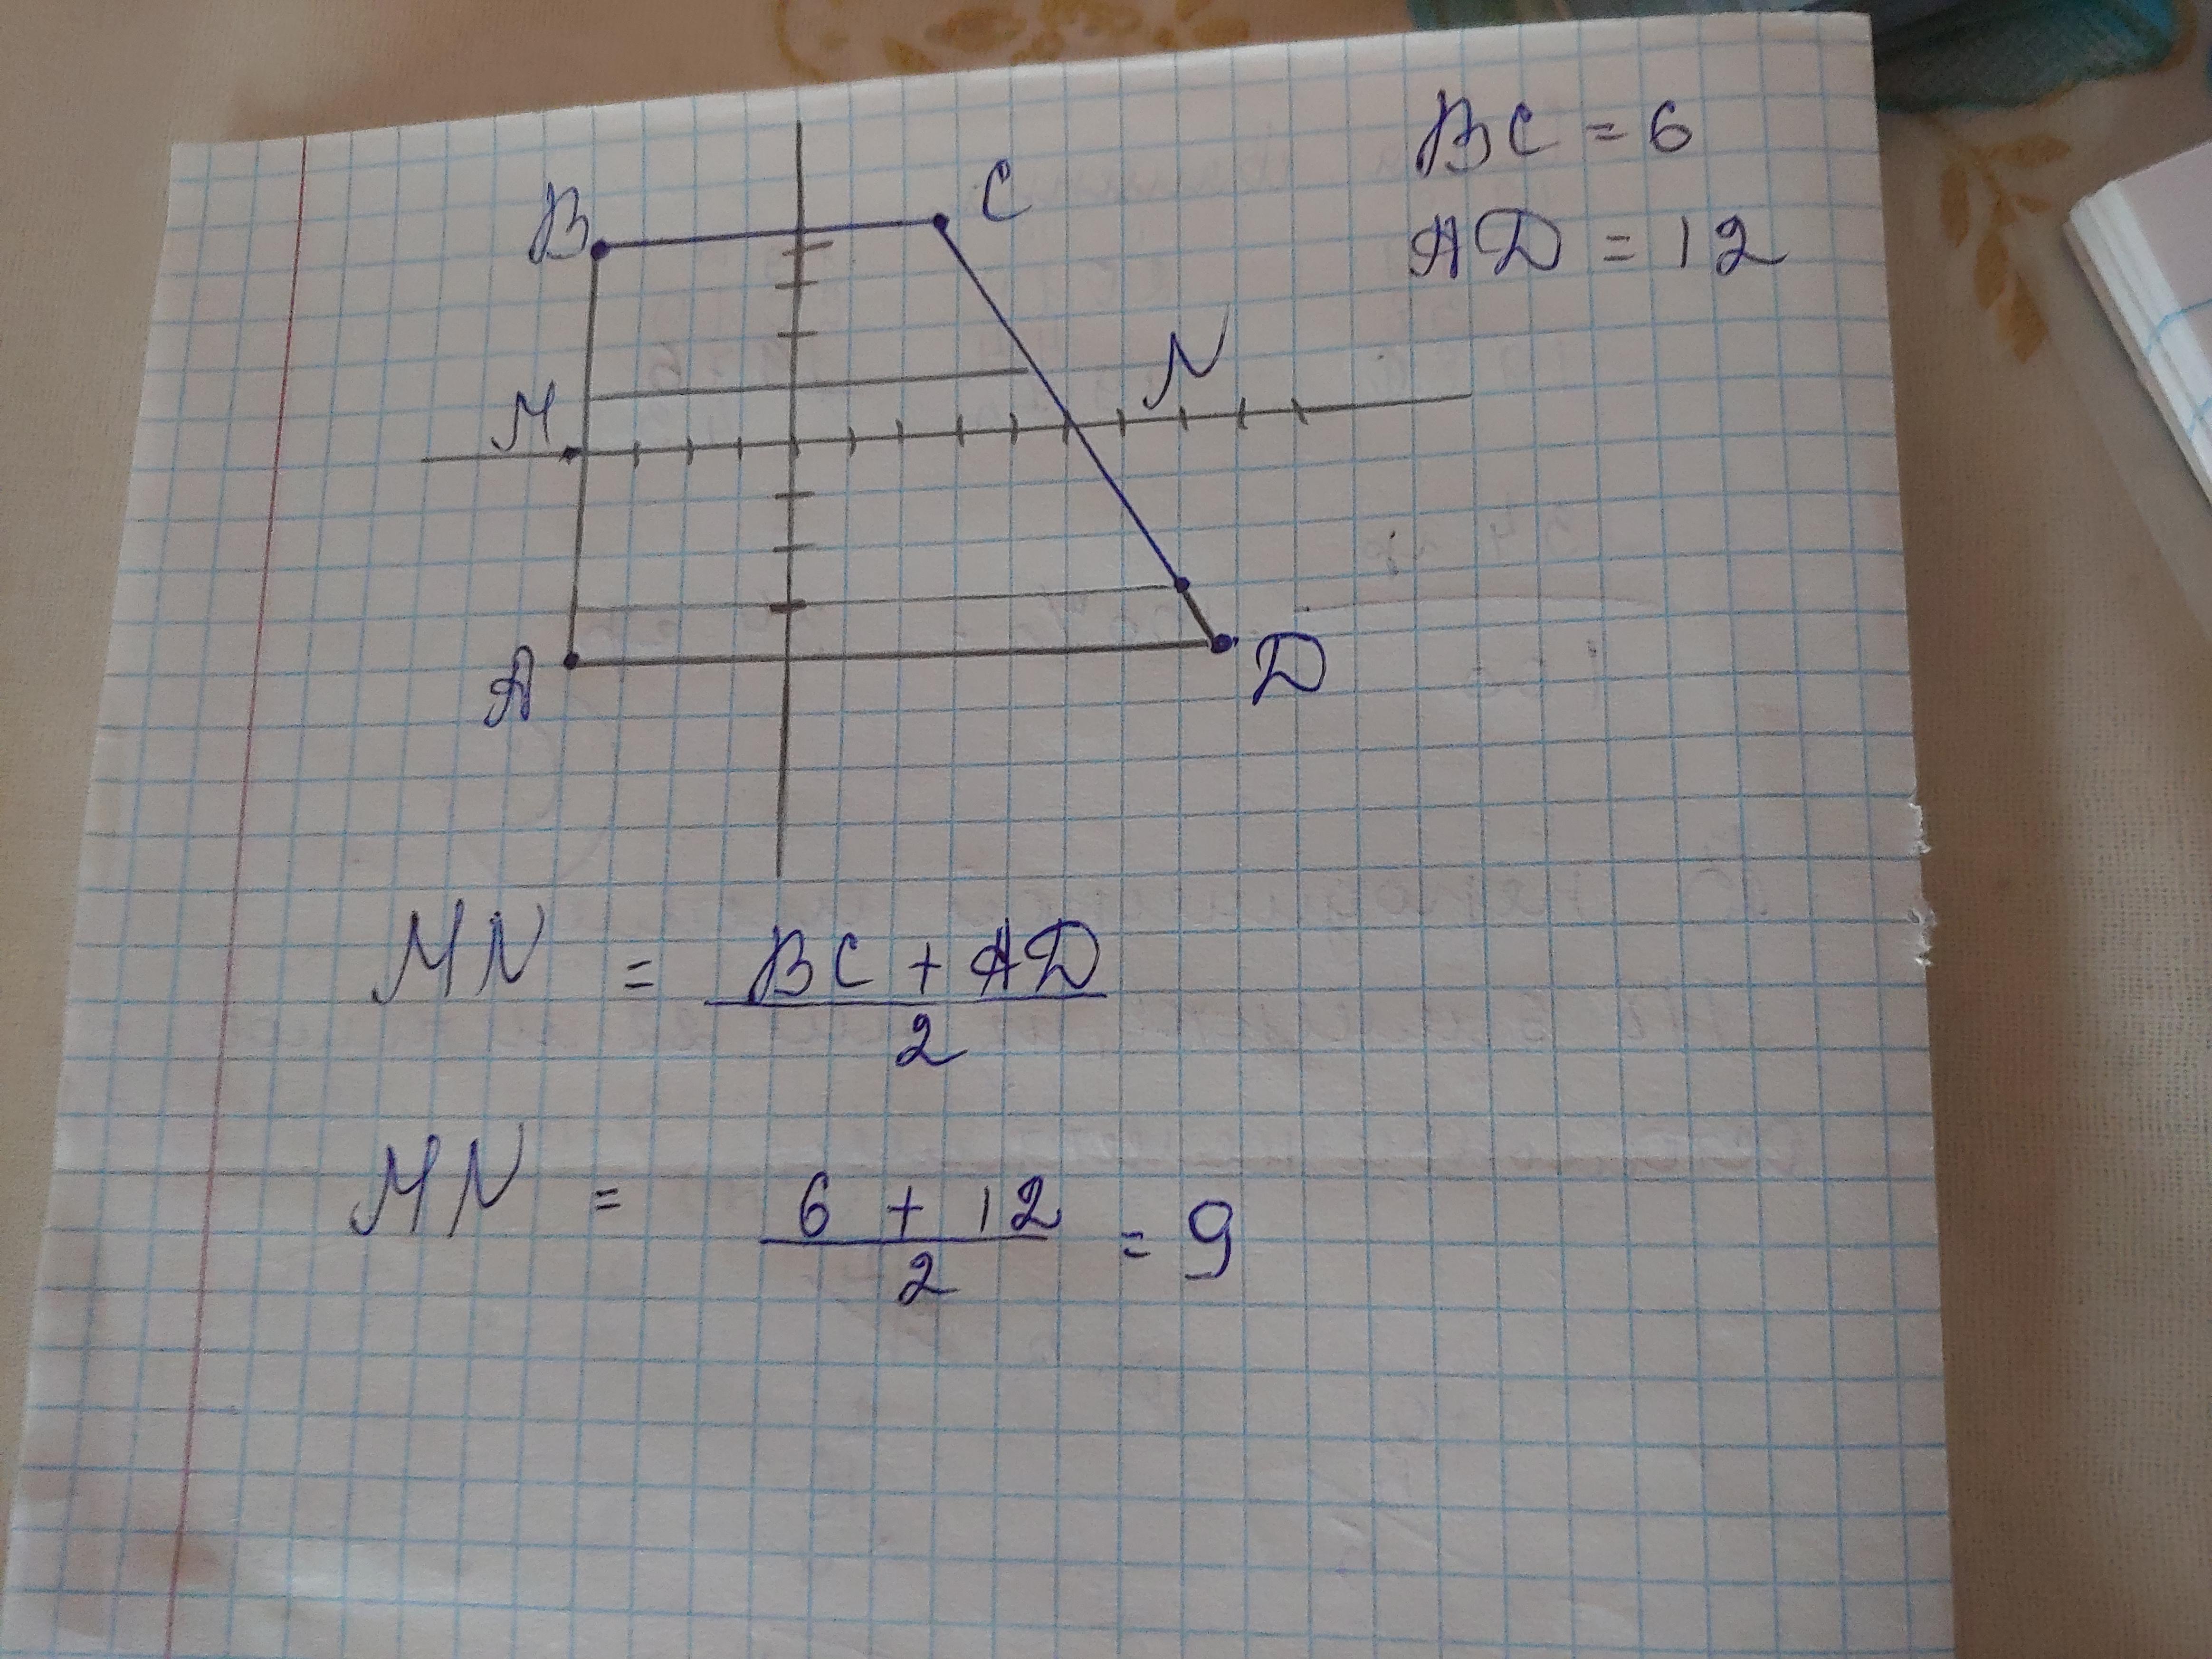 BC = 6
AD = 12
B
C
M
N
A
D
MN = BC + AD
2
MN = 6 + 12 = 9
2